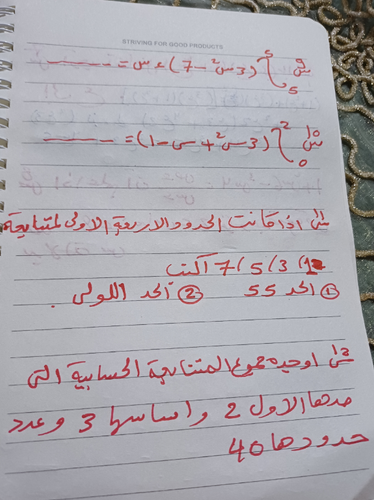 STRIVING FOR GOOD PRODUCTS
س9 ∫ (3س² - 7) ء س =
س10 ∫ (3س² + س - 1) =
س11 اذا كانت الحدود الاربعة الاولى لمتتابعة
1, 3/ 5/ 7 اكتب
① الحد 55 ② الحد اللولى.
س12 اوجد مجموع المتتابعة الحسابية التى
حدها الاول 2 واساسها 3 وعدد
حدودها 40